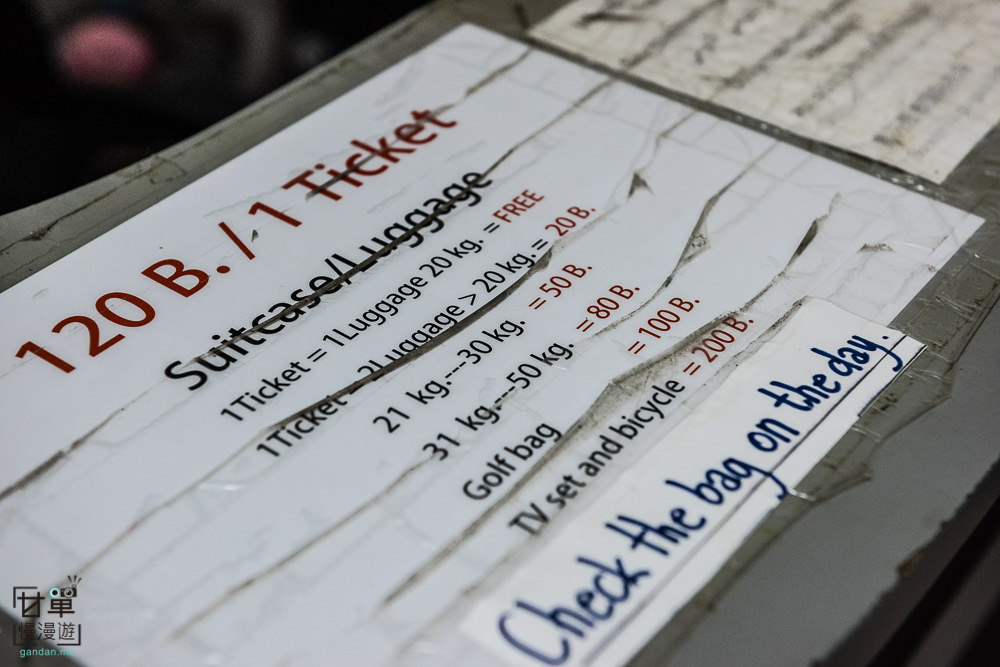 120 B. / 1 Ticket
Suitcase/Luggage
1Ticket = 1Luggage 20 kg. = FREE
1Ticket 2Luggage > 20 kg. = 20 B.
21 kg.---30 kg. = 50 B.
31 kg.---50 kg. = 80 B.
Golf bag = 100 B.
TV set and bicycle = 200 B.
Check the bag on the day.
甘單
慢漫遊
gandan.